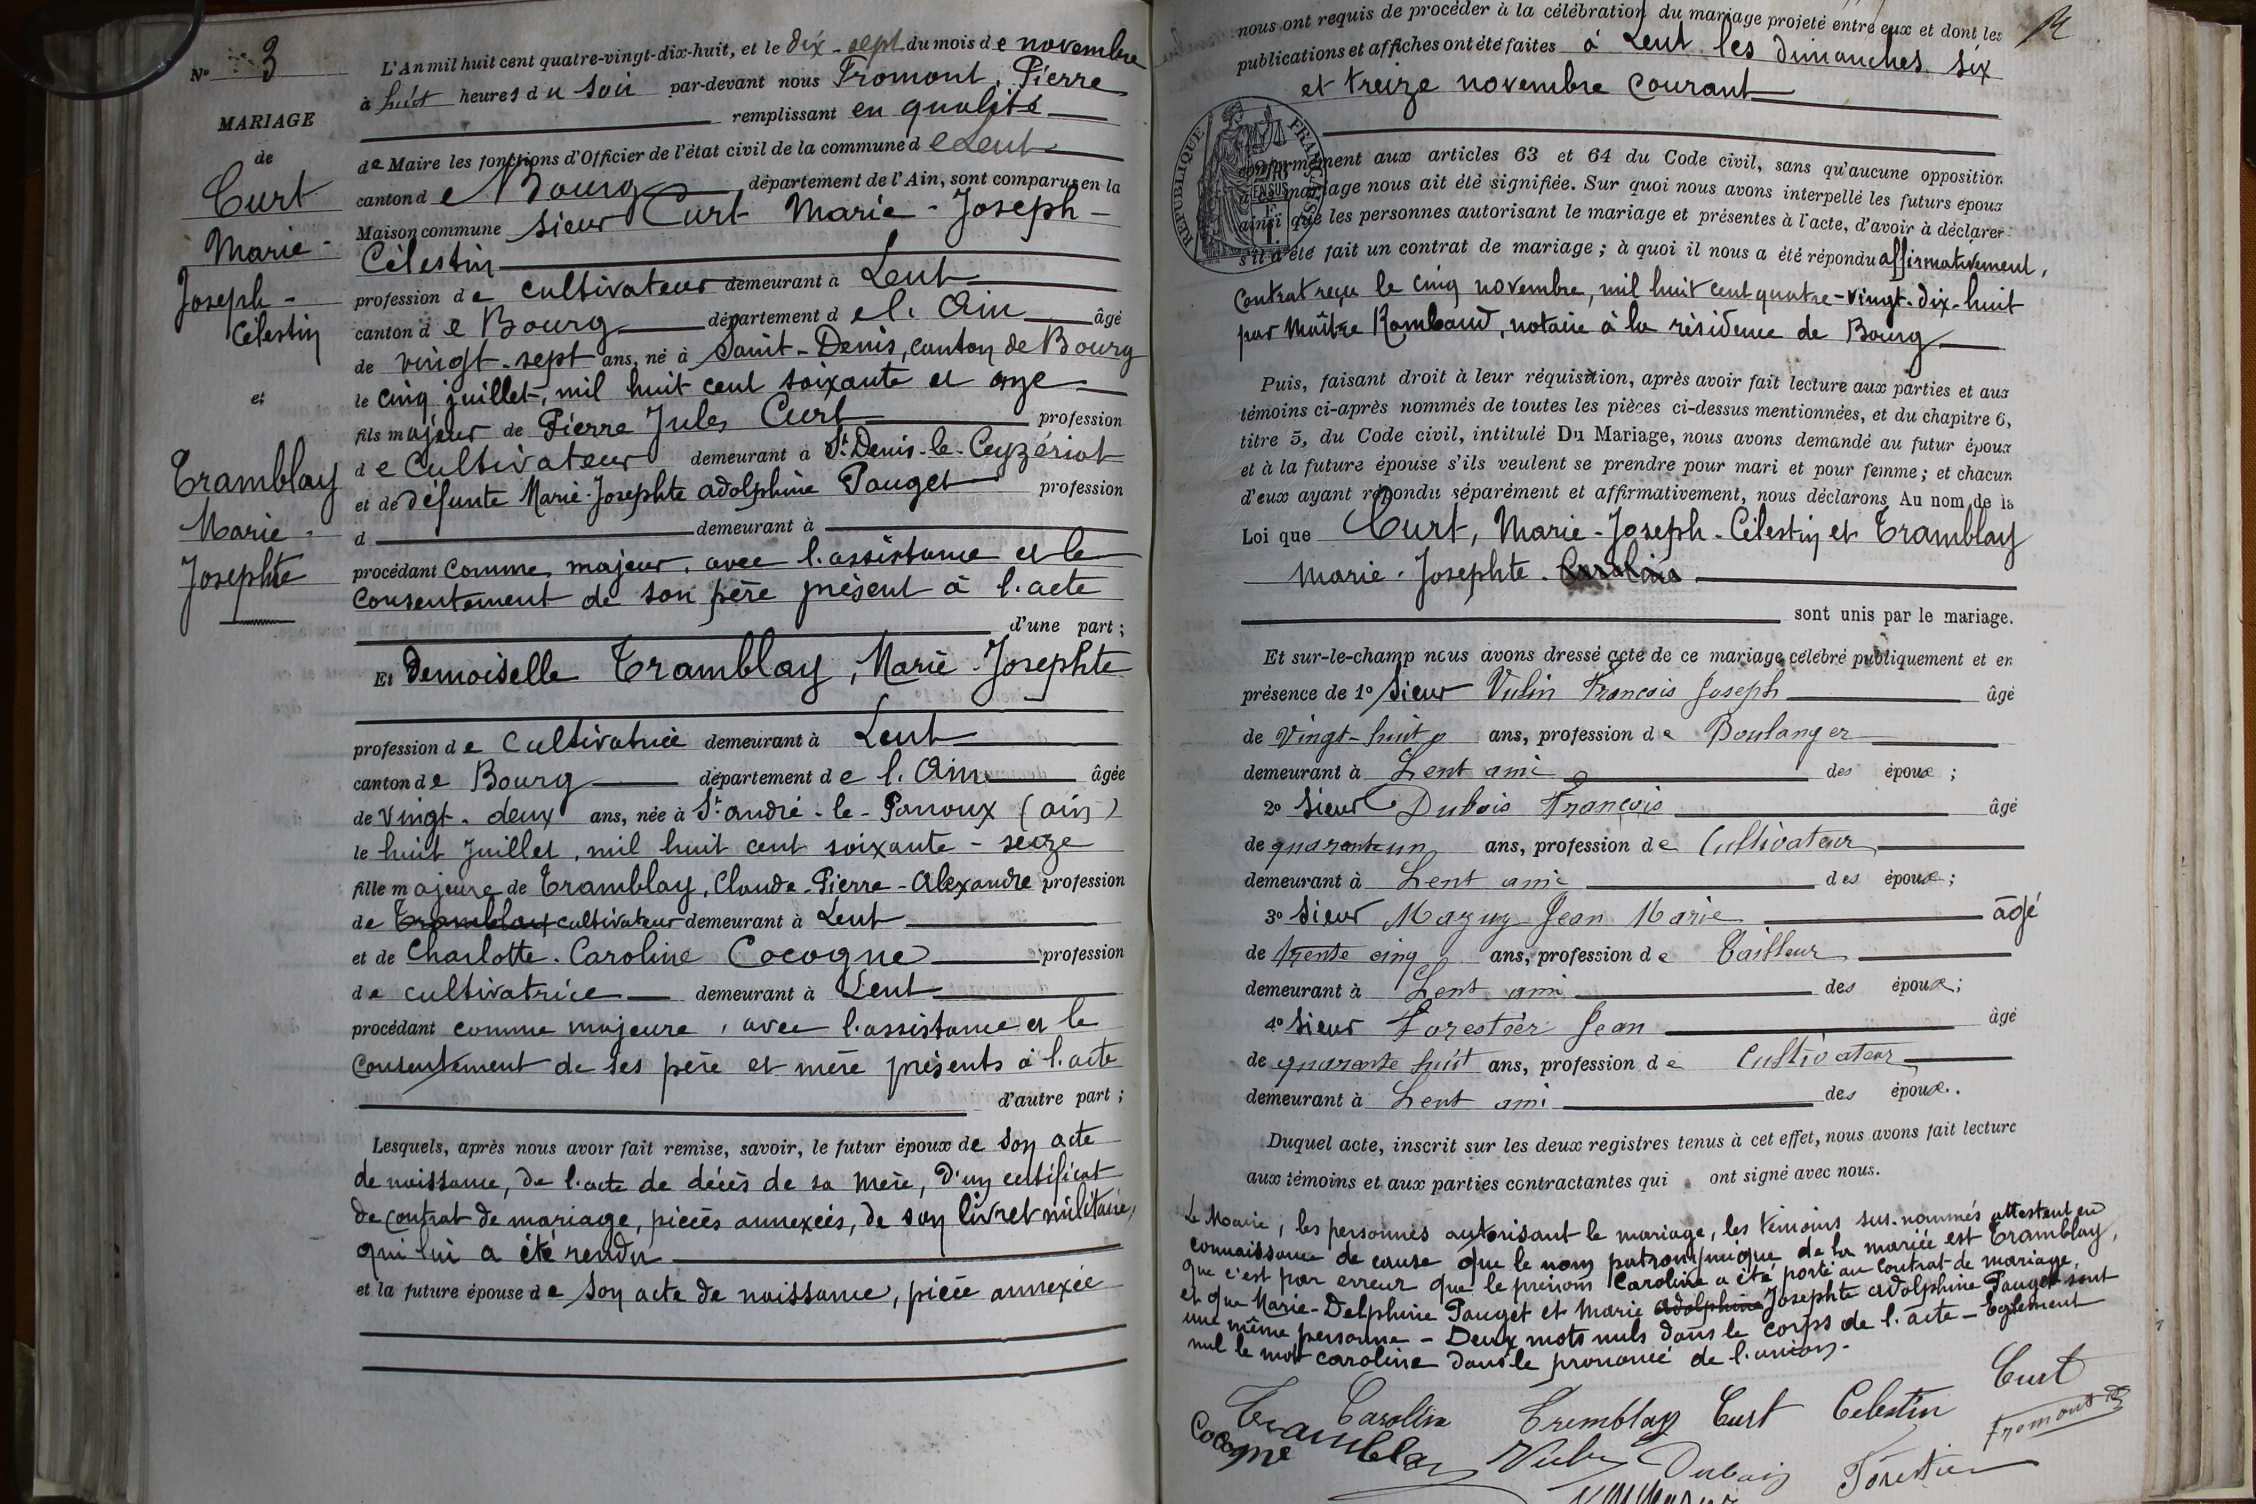 N° 3
MARIAGE
de
Curt
Marie-
Joseph-
Célestin
et
Tramblay
Marie-
Josephte
L'An mil huit cent quatre-vingt-dix-huit, et le dix-sept du mois de novembre
à huit heures du soir par-devant nous Fromont, Pierre
remplissant en qualité
de Maire les fonctions d'Officier de l'état civil de la commune de Lent
canton de Bourg département de l'Ain, sont comparus en la
Maison commune sieur Curt Marie-Joseph-
Célestin
profession de cultivateur demeurant à Lent
canton de Bourg département de l'Ain âgé
de vingt-sept ans, né à Saint-Denis, canton de Bourg
le cinq juillet, mil huit cent soixante et onze
fils majeur de Pierre Jules Curt profession
de Cultivateur demeurant à St Denis-le-Ceyzériat
et de défunte Marie Josephte adolphine Pauget profession
d demeurant à
procédant comme majeur, avec l'assistance et le
consentement de son père présent à l'acte
d'une part;
Et demoiselle Tramblay, Marie-Josephte
profession de Cultivatrice demeurant à Lent
canton de Bourg département de l'Ain âgée
de vingt-deux ans, née à St andré-le-Panoux (ain)
le huit Juillet, mil huit cent soixante-seize
fille majeure de Tramblay, Claude-Pierre-Alexandre profession
de Tramblay cultivateur demeurant à Lent
et de Charlotte-Caroline Cocogne profession
de cultivatrice demeurant à Lent
procédant comme majeure, avec l'assistance et le
consentement de ses père et mère présents à l'acte
d'autre part;
Lesquels, après nous avoir fait remise, savoir, le futur époux de son acte
de naissance, de l'acte de décès de sa mère, d'un certificat
de contrat de mariage, pièces annexées, de son livret militaire,
qui lui a été rendu
et la future épouse de son acte de naissance, pièce annexée
nous ont requis de procéder à la célébration du mariage projeté entre eux et dont les
publications et affiches ont été faites à Lent les dimanches six
et treize novembre courant
RÉPUBLIQUE FRANÇAISE
conformément aux articles 63 et 64 du Code civil, sans qu'aucune opposition
à ce mariage nous ait été signifiée. Sur quoi nous avons interpellé les futurs époux
ainsi que les personnes autorisant le mariage et présentes à l'acte, d'avoir à déclarer
s'il a été fait un contrat de mariage; à quoi il nous a été répondu affirmativement,
Contrat reçu le cinq novembre, mil huit cent quatre-vingt-dix-huit
par Maître Rambaud, notaire à la résidence de Bourg
Puis, faisant droit à leur réquisition, après avoir fait lecture aux parties et aux
témoins ci-après nommés de toutes les pièces ci-dessus mentionnées, et du chapitre 6,
titre 5, du Code civil, intitulé Du Mariage, nous avons demandé au futur époux
et à la future épouse s'ils veulent se prendre pour mari et pour femme; et chacun
d'eux ayant répondu séparément et affirmativement, nous déclarons Au nom de la
Loi que Curt, Marie-Joseph-Célestin et Tramblay
Marie-Josephte-Caroline
sont unis par le mariage.
Et sur-le-champ nous avons dressé acte de ce mariage célébré publiquement et en
présence de 1° Sieur Vulin François Joseph âgé
de Vingt-huit ans, profession de Boulanger
demeurant à Lent ami des époux;
2° Sieur Dubois François âgé
de quarante un ans, profession de Cultivateur
demeurant à Lent ami des époux;
3° Sieur Mazuy Jean Marie âgé
de trente cinq ans, profession de Tailleur
demeurant à Lent ami des époux;
4° Sieur Forestier Jean âgé
de quarante huit ans, profession de Cultivateur
demeurant à Lent ami des époux.
Duquel acte, inscrit sur les deux registres tenus à cet effet, nous avons fait lecture
aux témoins et aux parties contractantes qui ont signé avec nous.
Le Maire, les personnes autorisant le mariage, les témoins sus-nommés attestent en
connaissance de cause que le nom patronymique de la mariée est Tramblay,
que c'est par erreur que le prénom Caroline a été porté au contrat de mariage,
et que Marie-Delphine Pauget et Marie Adolphine Josephte adolphine Pauget sont
une même personne - Deux mots nuls dans le corps de l'acte - Egalement
nul le mot caroline dans le prononcé de l'union.
Curt
Caroline Tremblay Curt Celestin
Fromont
Cocogne Tramblay
Vulin Dubois Forestier